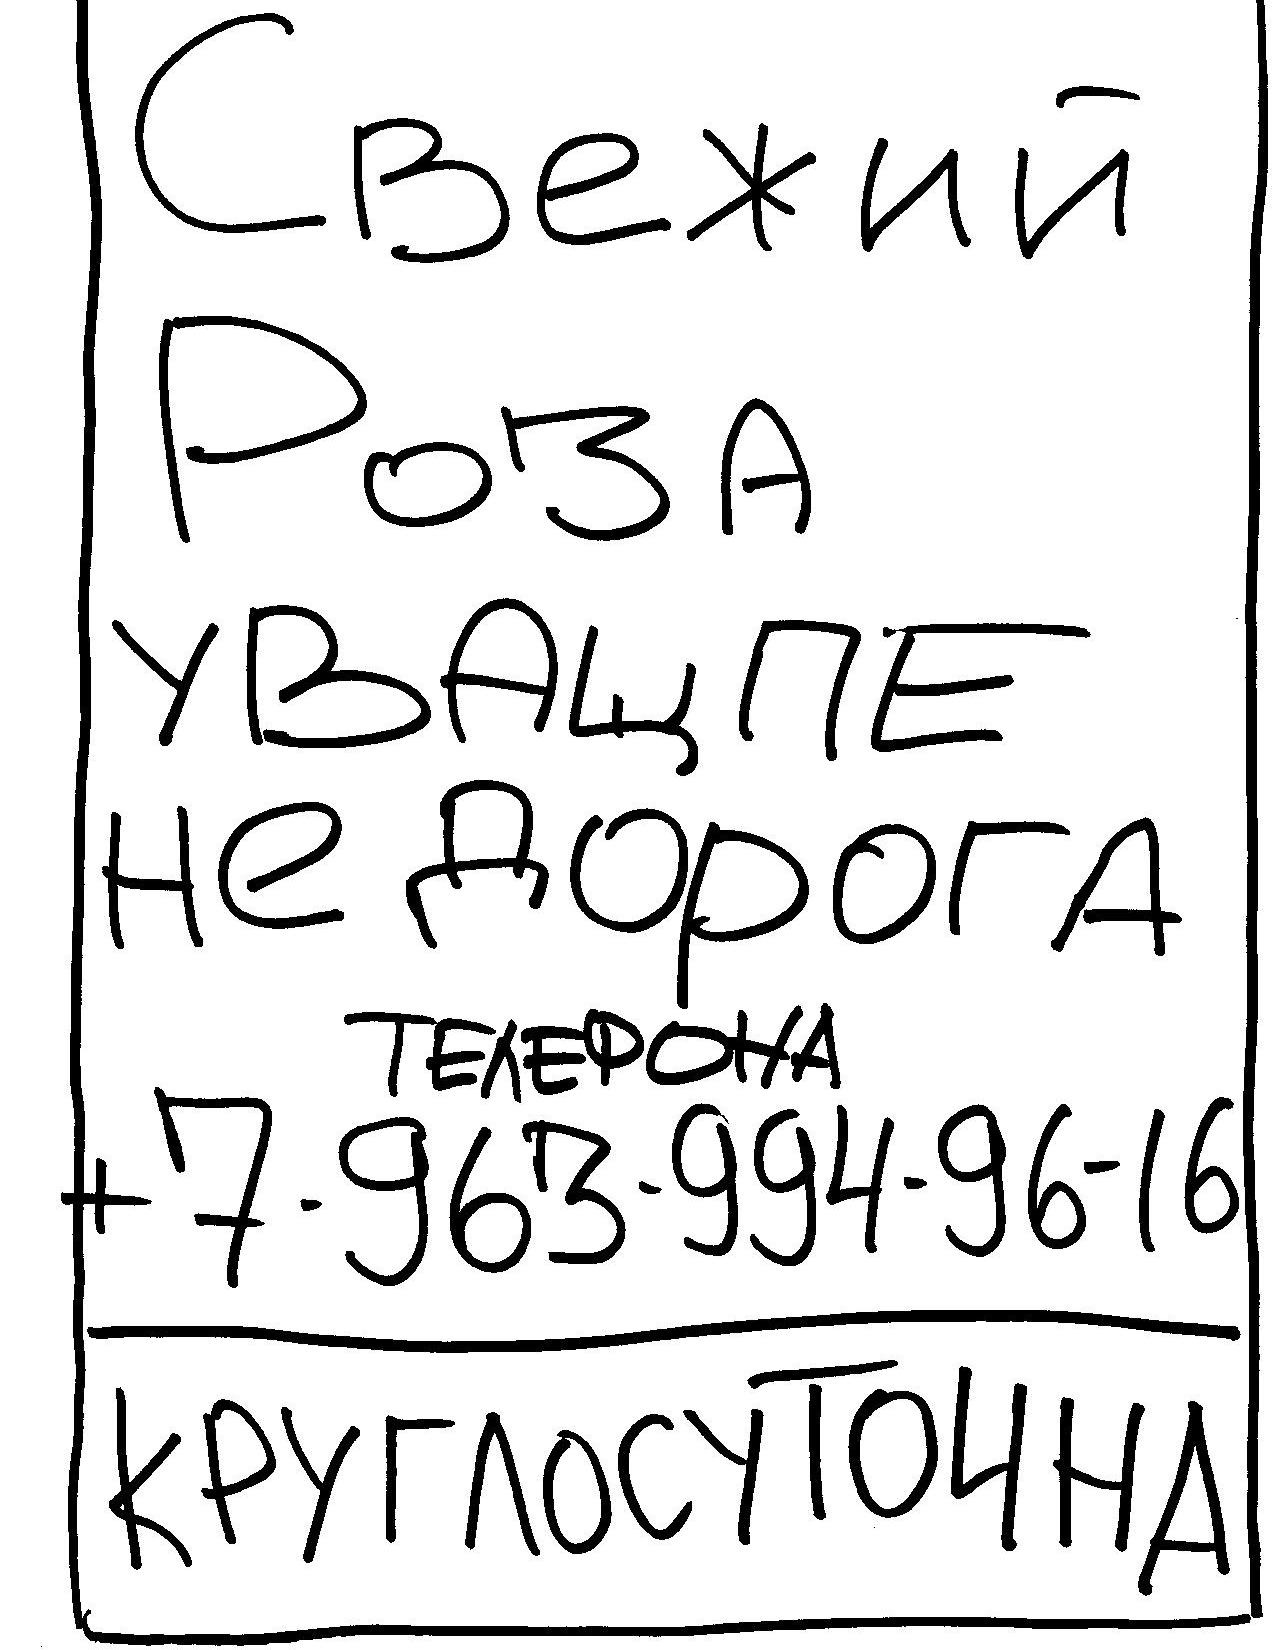 Свежий
Роза
УВАЩПЕ
не ДОРОГА
ТЕЛЕФОНА
+7-963-994-96-16
КРУГЛОСУТОЧНА